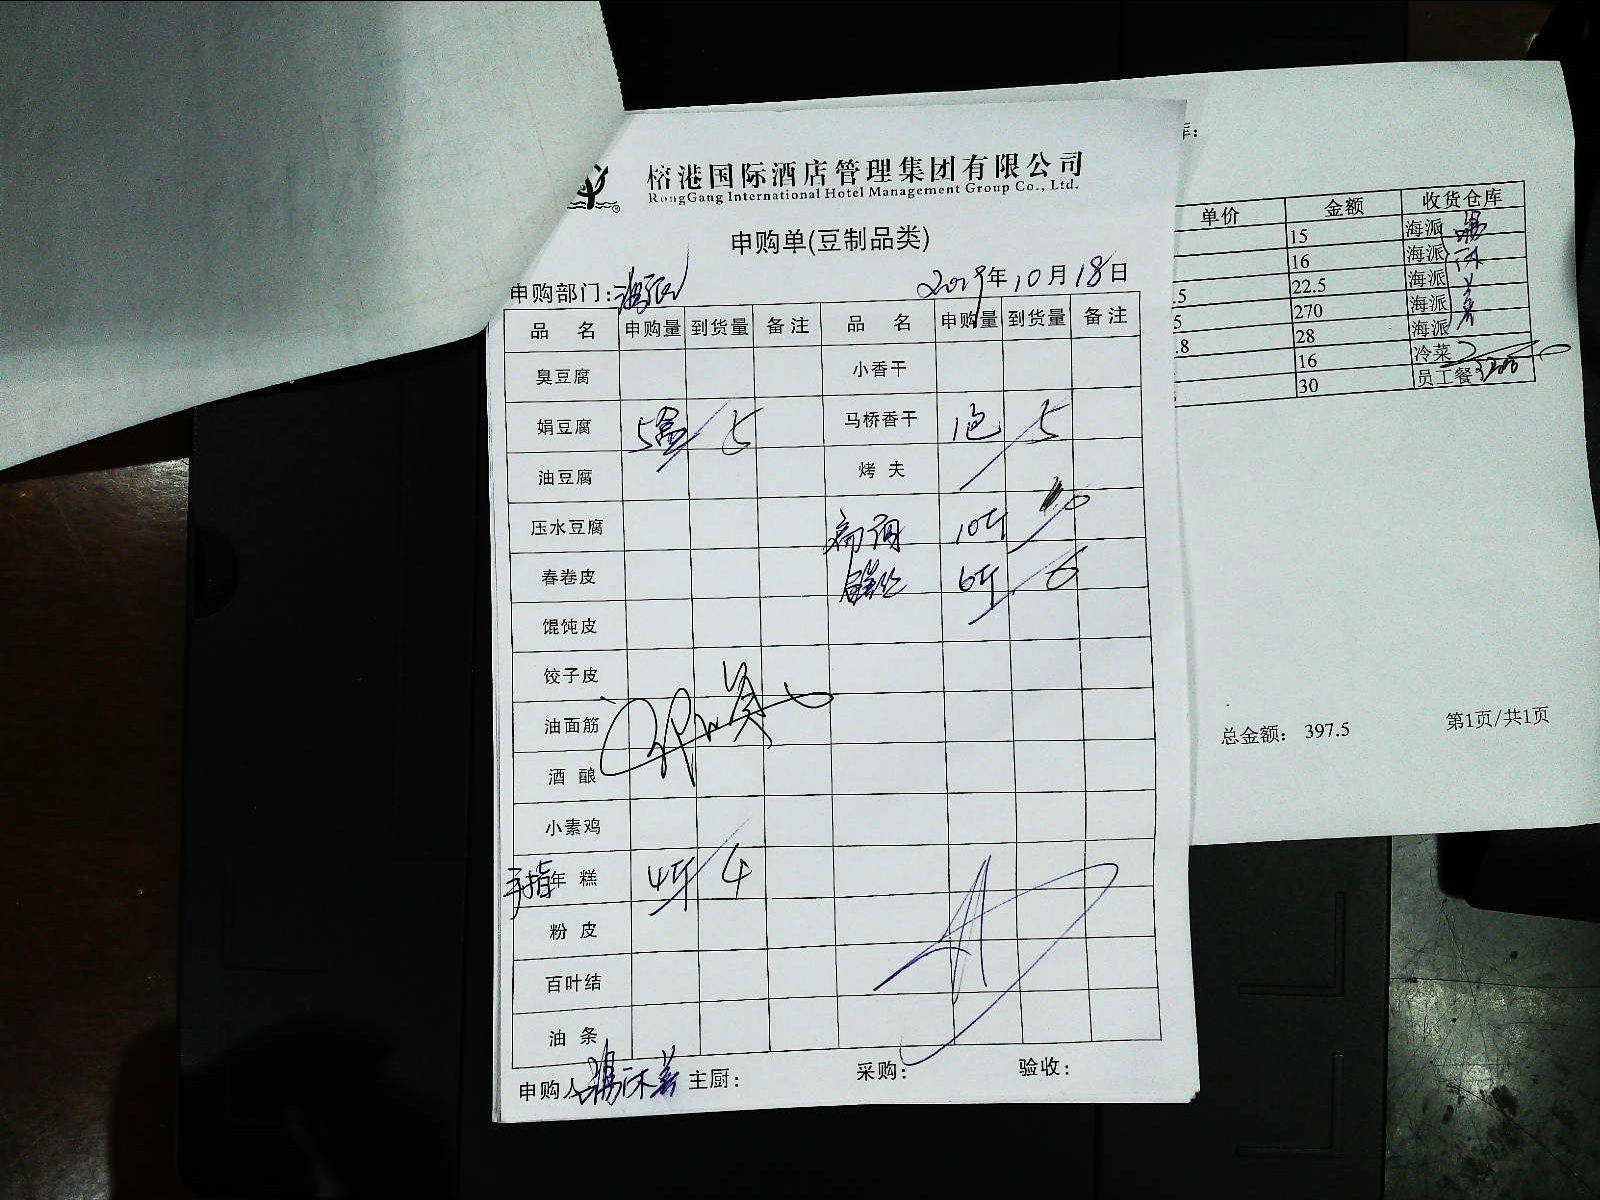 榕港国际酒店管理集团有限公司
RongGang International Hotel Management Group Co., Ltd.
申购单(豆制品类)
申购部门: 海派 2019年10月18日
品 名 申购量 到货量 备注 品 名 申购量 到货量 备注
臭豆腐 小香干
娟豆腐 5盒 5 马桥香干 1包 5
油豆腐 烤 夫
压水豆腐 10斤
春卷皮 6斤 6
馄饨皮
饺子皮
油面筋
酒 酿
小素鸡
手指年 糕 4斤 4
粉 皮
百叶结
油 条
申购人 主厨: 采购: 验收:
库:
单价 金额 收货仓库
15 海派
16 海派
.5 22.5 海派
5 270 海派
.8 28 海派
16 冷菜
30 员工餐
总金额: 397.5 第1页/共1页